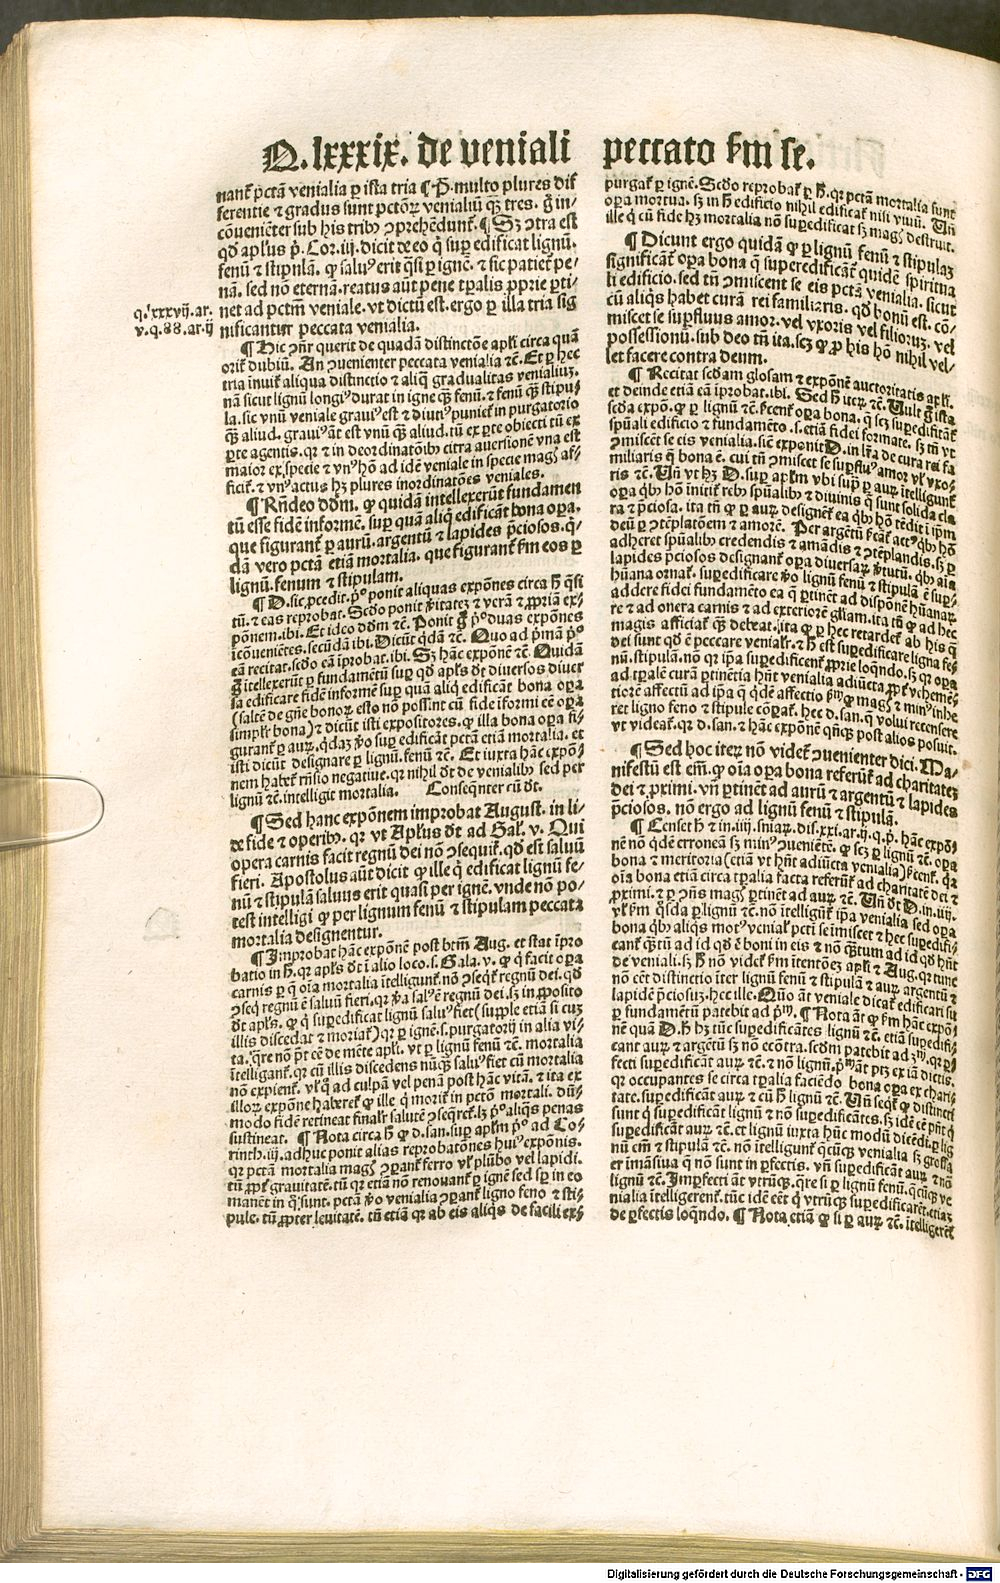 Q. lxxxix. de veniali peccato ẜm se.
nanť pctā venialia ꝑ ista tria ¶ P̄. multo plures dif
ferentie ⁊ gradus sunt pctōꝝ venialiū qꝫ tres. g̊ in⸗
cōueniēter sub his tribꝰ ꝯprehēdunť. ¶ Sꝫ ꝯtra est
qd̄ apl̓us p̄. Cor. iij. dicit de eo q̇ suꝑ edificat lignū.
fenū ⁊ stipulā. ꝙ saluꝰ erit q̄si ꝑ ignē. ⁊ sic patieť pe⸗
nā. sed nō eternā. reatus aūt pene tꝑalis ꝓprie ꝑti⸗
net ad pctm̄ veniale. vt dictū est. ergo ꝑ illa tria sig
nificantur peccata venialia.
q. lxxxvij. ar.
v. q. 88. ar. ij
¶ Hic ꝯn̄r querit de quadā distinctōe apl̓i circa quā
oriť dubiū. An ꝯuenienter peccata venialia ⁊c̄. Et ꝑ hec
tria īnuiť aliqua distinctio ⁊ aliq̄ gradualitas venialiuꝫ.
nā sicut lignū longiꝰ durat in igne qꝫ fenū. ⁊ fenū qꝫ stipu⸗
la. sic vnū veniale grauiꝰ est ⁊ diutiꝰ punieť in purgatorio
qꝫ aliud. grauiꝰ aūt est vnū qꝫ aliud. tū ex ꝑte obiecti tū ex
ꝑte agentis. qꝛ ⁊ in deordinatōibꝰ citra auersionē vna est
maior ex specie ⁊ vnꝰ hō ad idē veniale in specie magꝭ af⸗
ficiť. ⁊ vnꝰ actus hꝫ plures inordinatōes veniales.
¶ Rn̄deo dd̄m. ꝙ quidā intellexerūt fundamen
tū esse fidē informē. suꝑ quā aliq̇ edificāt bona oꝑa.
que figuranť ꝑ aurū. argentū ⁊ lapides p̄ciosos. q̇⸗
dā vero pctā etiā mortalia. que figuranť ẜm eos ꝑ
lignū. fenum ⁊ stipulam.
¶ D. sic ꝓcedit. p̊. ponit aliquas expōnes circa h̄ q̄si
tū. ⁊ eas reprobat. Scd̄o ponit v̓itateꝫ ⁊ verā ⁊ ꝓpriā ex⸗
pōnem. ibi. Et ideo dd̄m ⁊c̄. Ponit g̊ p̊. duas expōnes
icōueniētes. secūdā ibi. Dicūt q̇dā ⁊c̄. Quo ad p̓mā p̊.
eā recitat. scd̄o eā īprobat. ibi. Sꝫ hāc expōnē ⁊c̄. Quidā
g̊ itellexerūt ꝑ fundamētū suꝑ qd̄ apl̓s dt̄ diuersos diuer
sa edificare fidē informē suꝑ quā aliq̇ edificāt bona oꝑa
(saltē de gn̄e bonoꝝ. esto nō possint cū fide īformi eē oꝑa
simpl̓r bona) ⁊ dicūt isti expositores. ꝙ illa bona oꝑa fi⸗
guranť ꝑ auꝝ. q̇daꝫ v̓o suꝑ edificant pctā etiā mortalia. et
isti dicūt designare ꝑ lignū. fenū ⁊c̄. Et iuxta hāc expō⸗
nem habeť rn̄sio negatiue. qꝛ nihil dt̄ de venialibꝰ sed per
lignū ⁊c̄. intelligit mortalia. Conseqn̄ter cū dt̄.
¶ Sed hanc expōnem improbat August. in li⸗
de fide ⁊ operibꝰ. qꝛ vt Apl̓us dt̄ ad Gal̓. v. Qui
opera carnis facit regnū dei nō ꝯsequiť. qd̄ est saluū
fieri. Apostolus aūt dicit ꝙ ille q̇ edificat lignū fe⸗
nū ⁊ stipulā saluus erit quasi per ignē. vnde nō po⸗
test intelligi ꝙ per lignum fenū ⁊ stipulam peccata
mortalia designentur.
¶ Improbat hāc expōnē post btm̄ Aug. et stat īpro
batio in h̄. qꝛ apl̓s dt̄ ī alio loco. s. Gala. v. ꝙ q̇ facit oꝑa
carnis ꝑ q̄ oīa mortalia itelligunť. nō ꝯseq̇ť regnū dei. qd̄
ꝯseq̇ regnū ē saluū fieri. qꝛ v̓a salꝰ ē regnū dei. sꝫ in ꝓposito
dt̄ apl̓s. ꝙ q̇ suꝑedificat lignū saluꝰ fiet (supple etiā si cuꝫ
illis discedat ⁊ moriať) qꝛ ꝑ ignē. s. purgatorij in alia vi⸗
ta. q̄re nō pt̄ cē de mēte apl̓i. vt ꝑ lignū fenū ⁊c̄. mortalia
itelliganť. qꝛ cū illis discedens nūqꝫ saluꝰ fiet cū mortalia
nō expienť. vl̓ q̇ ad culpā vel penā post hāc vitā. ⁊ ita ex
illoꝝ expōne habereť ꝙ ille q̇ moriť in pctō mortali. dū⸗
modo fidē retineat finalr̓ salutē ꝯseq̄reť. lꝫ p̓. aliq̄s penas
sustineat. ¶ Nota circa h̄ ꝙ d. san. suꝑ apl̓m p̊. ad Co⸗
rinth. iij. adhuc ponit alias reprobatōnes huiꝰ expōnis.
qꝛ pctā mortalia magꝭ ꝯparanť ferro vl̓ plūbo vel lapidi.
tū ꝓpť grauitatē. tū qꝛ etiā nō renouanť ꝑ ignē sed sꝑ in eo
manēt in q̊ sunt. pctā v̓o venialia ꝯparanť ligno feno ⁊ sti⸗
pule. tū ꝓpter leuitatē. tū etiā qꝛ ab eis aliq̇s de facili ex⸗
purgať ꝑ ignē. Scd̄o reprobať ꝑ h̄. qꝛ pctā mortalia sunt
oꝑa mortua. sꝫ in h̄ edificio nihil edificať nisi viuū. Vn̄
ille q̇ cū fide hꝫ mortalia nō suꝑedificat sꝫ magꝭ destruit.
¶ Dicunt ergo quidā ꝙ ꝑ lignū fenū ⁊ stipulaꝫ
significāť oꝑa bona q̄ superedificāť quidē spiritua
li edificio. sed tn̄ ꝯmiscent se eis pctā venialia. sicut
cū aliq̇s habet curā rei familiaris. qd̄ bonū est. cō⸗
miscet se superfluus amor. vel vxoris vel filioruꝫ. vel
possessionū. sub deo tn̄ ita. scꝫ ꝙ ꝓ his hō nihil vel⸗
let facere contra deum.
¶ Recitat scd̄am glosam ⁊ expōnē auctoritatis apl̓i.
et deinde etiā eā īprobat. ibi. Sed h̄ iteꝝ ⁊c̄. Uult g̊ ista
scd̄a expō. ꝙ ꝑ lignū ⁊c̄. ſc̄enť oꝑa bona. q̄ scꝫ suꝑedificāť
spūali edificio ⁊ fundamēto. s. etiā fidei formate. sꝫ tn̄ vt
ꝯmiscēt se eis venialia. sicut exponit D. in lr̄a de cura rei fa
miliaris q̄ bona ē. cui tn̄ ꝯmiscet se suꝑfluꝰ amor vl̓ vxo⸗
ris ⁊c̄. Vn̄ vt hꝫ D. suꝑ apl̓m vbi supͣ ꝑ auꝝ itelligunť
oꝑa q̇bꝰ hō initiť rebꝰ spūalibꝰ ⁊ diuinis q̄ sunt solida cla
ra ⁊ p̄ciosa. ita tn̄ ꝙ ꝑ auꝝ designēť ea q̇bꝰ hō tēdit ī ipm̄
deū ꝑ ꝯtēplatōem ⁊ amorē. Per argētū ſc̄anť actꝰ q̇bꝰ hō
adheret spūalibꝰ credendis ⁊ amādis ⁊ ꝯtēplandis. sꝫ ꝑ
lapides p̄ciosos designanť oꝑa diuersaꝝ v̓tutū. q̇bꝰ aīa
hūana ornať. suꝑedificare v̓o lignū fenū ⁊ stipulā ē suꝑ⸗
addere fidei fundamēto ea q̄ ꝑtinēt ad dispōnē hūanaꝝ
re ⁊ ad onera carnis ⁊ ad exteriorē gl̓iam. ita tn̄ ꝙ ad hec
magis afficiať qꝫ debeat. ita ꝙ ꝑ hec retardeť ab his q̄
dei sunt qd̄ ē peccare venialr̓. ⁊ h̄ est suꝑedificare ligna fe⸗
nū. stipulā. nō qꝛ ip̄a suꝑedificenť ꝓprie loq̄ndo. sꝫ qꝛ oꝑa
ad tꝑale curā ꝑtinētia hn̄t venialia adiūcta ꝓpť vehemē⸗
tiorē affectū ad ip̄a q̄ q̇dē affectio ẜm ꝙ magꝭ ⁊ minꝰ inhe
ret ligno feno ⁊ stipule cōꝑať. hec D. san. q̄ volui recensere
vt videať. qꝛ d. san. ⁊ hāc expōnē q̄nqꝫ post alios posuit.
¶ Sed hoc iteꝝ nō videť ꝯuenienter dici. Ma⸗
nifestū est em̄. ꝙ oīa oꝑa bona referūť ad charitatez
dei ⁊ ꝓximi. vn̄ ꝑtinēt ad aurū ⁊ argentū ⁊ lapides
p̄ciosos. nō ergo ad lignū fenū ⁊ stipulā.
¶ Censet h̄ ⁊ in. iiij. sniaꝝ. dis. xxi. ar. ij. q. p̊. hāc expō⸗
nē nō q̇dē erroneā sꝫ minꝰ ꝯueniētē. ꝙ scꝫ ꝑ lignū ⁊c̄. oꝑa
bona ⁊ meritoria (etiā vt hn̄t adiūcta venialia) ſc̄enť. q̄ꝛ
oīa bona etiā circa tꝑalia facta referūť ad charitatē dei ⁊
ꝓximi. ⁊ ꝑ ꝯn̄s magꝭ ꝑtinēt ad auꝝ ⁊c̄. Vn̄ dt̄ D. in. iiij.
vl̓ ſc̄m q̄sdā ꝑ lignū ⁊c̄. nō itelligunť ip̄a venialia sed oꝑa
bona q̇bꝰ aliq̇s motꝰ venial̓ pcti se imiscet ⁊ hec suꝑedifi⸗
canť qꝫtū ad id qd̄ ē boni in eis ⁊ nō qꝫtum ad id qd̄ hn̄t
de veniali. sꝫ h̄ nō videť ẜm itentōeꝫ apl̓i ⁊ Aug. qꝛ tunc
nō eēt distinctio iter lignū fenū ⁊ stipulā ⁊ auꝝ argentū ⁊
lapidē p̄ciosuꝫ. hec ille. Quō aūt veniale dicať edificari suꝑ
fundamētū patebit ad p̓m. ¶ Nota aūt ꝙ ẜm hāc expō⸗
nē quā D. h̄ hꝫ tūc suꝑedificātes lignū ⁊c̄. etiā suꝑedifi⸗
cant auꝝ ⁊ argētū sꝫ nō ecōtra. scd̄m patebit ad 3m. qꝛ ꝑ
fecti suꝑedificāt auꝝ ⁊c̄. ⁊ nō lignū. p̓m aūt ptꝫ ex iā dictis.
qꝛ occupantes se circa tꝑalia faciēdo bona oꝑa ex chari⸗
tate. suꝑedificāt auꝝ ⁊ cū h̄ lignū ⁊c̄. Vn̄ seq̇ť ꝙ distincti
sunt q̇ suꝑedificāt lignū ⁊ nō suꝑedificātes. sꝫ idē cē pn̄t q̇
suꝑedificāt auꝝ ⁊c̄. et lignū iuxta hūc modū dicēdi. ꝑ lig
nū em̄ ⁊ stipulā ⁊c̄. nō itelligunť q̇cūqꝫ venialia sꝫ grossa
⁊ imāsiua q̄ nō sunt in ꝑfectis. vn̄ suꝑedificāt auꝝ ⁊ nō
lignū ⁊c̄. Imꝑfecti aūt vtrūqꝫ. q̄re si ꝑ lignū fenū. q̇cūqꝫ ve
nialia itelligerenť. tūc idē eēt q̇ vtrūqꝫ suꝑedificarēt. etiaꝫ
de ꝑfectis loq̄ndo. ¶ Nota etiā ꝙ si ꝑ auꝝ ⁊c̄. itelligereť
Digitalisierung gefördert durch die Deutsche Forschungsgemeinschaft - DFG